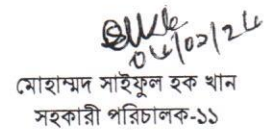 ০৫/০১/২৫
মোহাম্মদ সাইফুল হক খান
সহকারী পরিচালক-১১